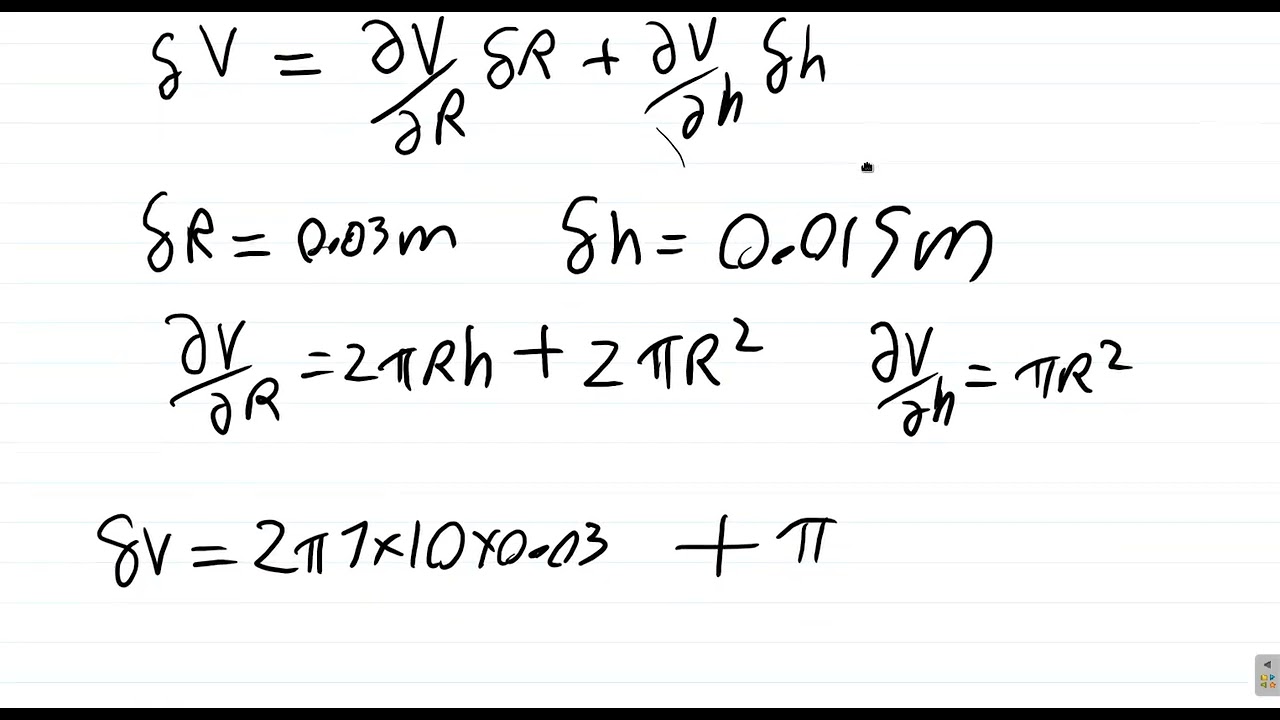 δV = ∂V/∂R δR + ∂V/∂h δh
δR = 0.03m δh = 0.015m
∂V/∂R = 2πRh + 2πR² ∂V/∂h = πR²
δV = 2π1×10×0.03 + π